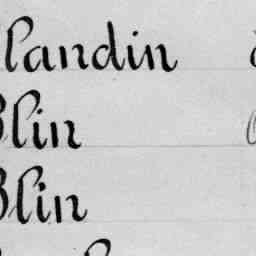 landin
Blin
Blin